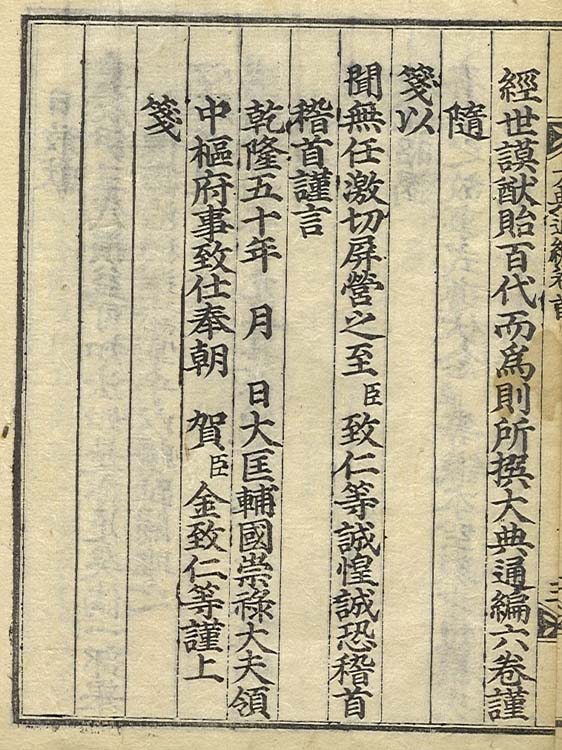 經世謨猷貽百代而爲則所撰大典通編六卷謹
隨
箋以
聞無任激切屛營之至臣致仁等誠惶誠恐稽首
稽首謹言
乾隆五十年 月 日大匡輔國崇祿大夫領
中樞府事致仕奉朝 賀臣金致仁等謹上
箋